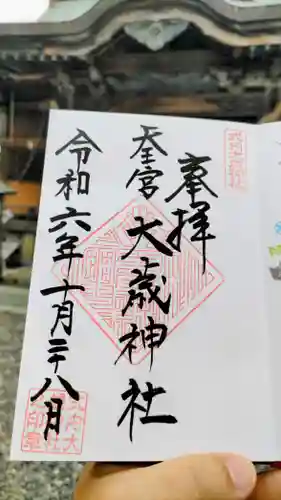 奉拝
天王宮
大歳神社
令和六年十月二十八日